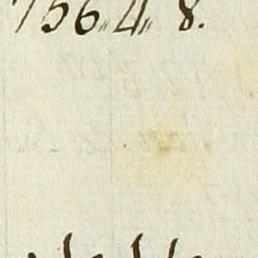 756.4. 8.